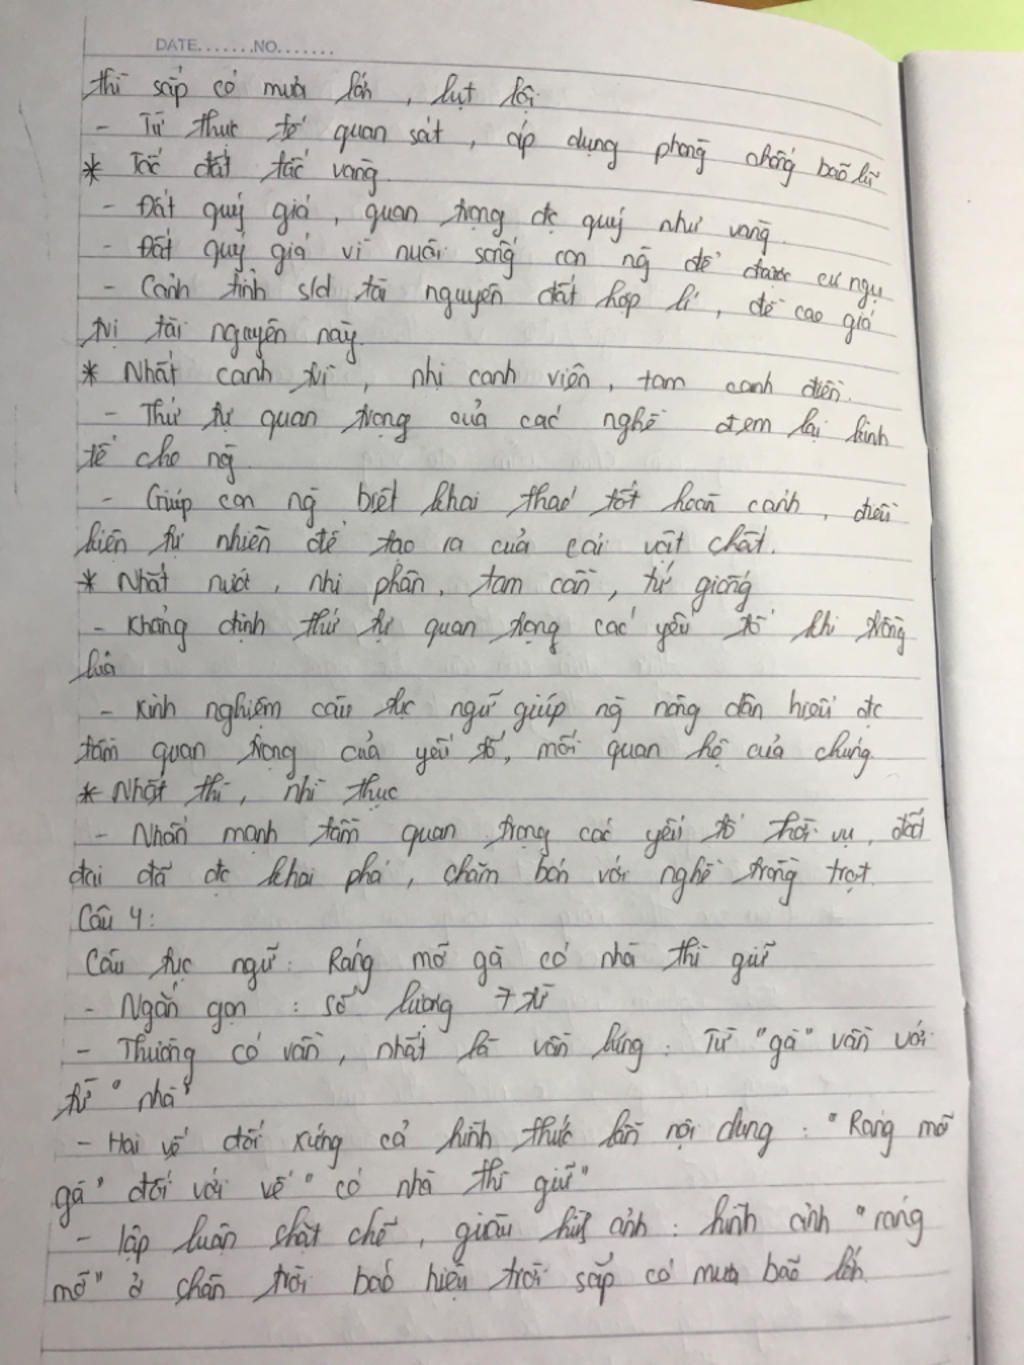 DATE.......NO.......
thì sắp có mưa lớn, lụt lội.
- Từ thực tế quan sát, áp dụng phòng chống bão lũ
* Tấc đất tấc vàng.
- Đất quý giá, quan trọng đc quý như vàng.
- Đất quý giá vì nuôi sống con ng để được cư ngụ
- Cảnh tỉnh s/d tài nguyên đất hợp lí, đề cao giá
trị tài nguyên này.
* Nhất canh trì, nhị canh viên, tam canh điền.
- Thứ tự quan trọng của các nghề đem lại kinh
tế cho ng.
- Giúp con ng biết khai thác tốt hoàn cảnh, điều
kiện tự nhiên để tạo ra của cải vật chất.
* Nhất nước, nhị phân, tam cần, tứ giống
- Khẳng định thứ tự quan trọng các yếu tố khi trồng
lúa
- Kinh nghiệm câu tục ngữ giúp ng nông dân hiểu đc
tầm quan trọng của yếu tố, mối quan hệ của chúng.
* Nhất thì, nhì thục
- Nhấn mạnh tầm quan trọng các yếu tố thời vụ, đất
đai đã đc khai phá, chăm bón với nghề trồng trọt.
Câu 4:
Câu tục ngữ: Ráng mỡ gà có nhà thì giữ
- Ngắn gọn: số lượng 7 từ
- Thường có vần, nhất là vần lưng: Từ "gà" vần với
từ "nhà"
- Hai vế đối xứng cả hình thức lẫn nội dung: "Ráng mỡ
gà" đối với vế "có nhà thì giữ"
- lập luận chặt chẽ, giàu hình ảnh: hình ảnh "ráng
mỡ" ở chân trời báo hiệu trời sắp có mưa bão lớn.